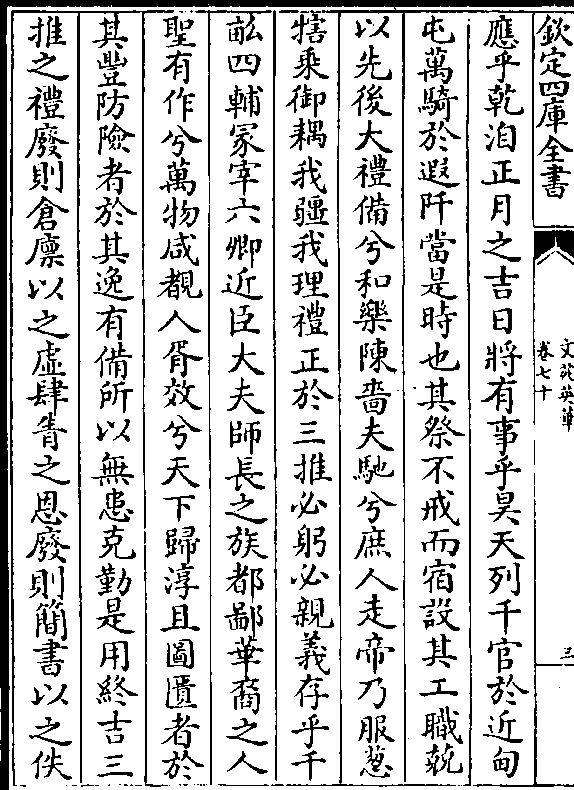 欽定四庫全書
文苑英華
卷七十
三
應乎乾洎正月之吉日將有事乎昊天列千官於近甸
屯萬騎於遐阡當是時也其祭不戒而宿設其工職兢
以先後大禮備兮和樂陳嗇夫馳兮庶人走帝乃服葱
犗乘御耦我疆我理禮正於三推必躬必親義存乎千
畝四輔冢宰六卿近臣大夫師長之族都鄙華裔之人
聖有作兮萬物咸覩人胥效兮天下歸淳且圖匱者於
其豐防險者於其逸有備所以無患克勤是用終吉三
推之禮廢則倉廪以之虚肆眚之恩廢則簡書以之佚